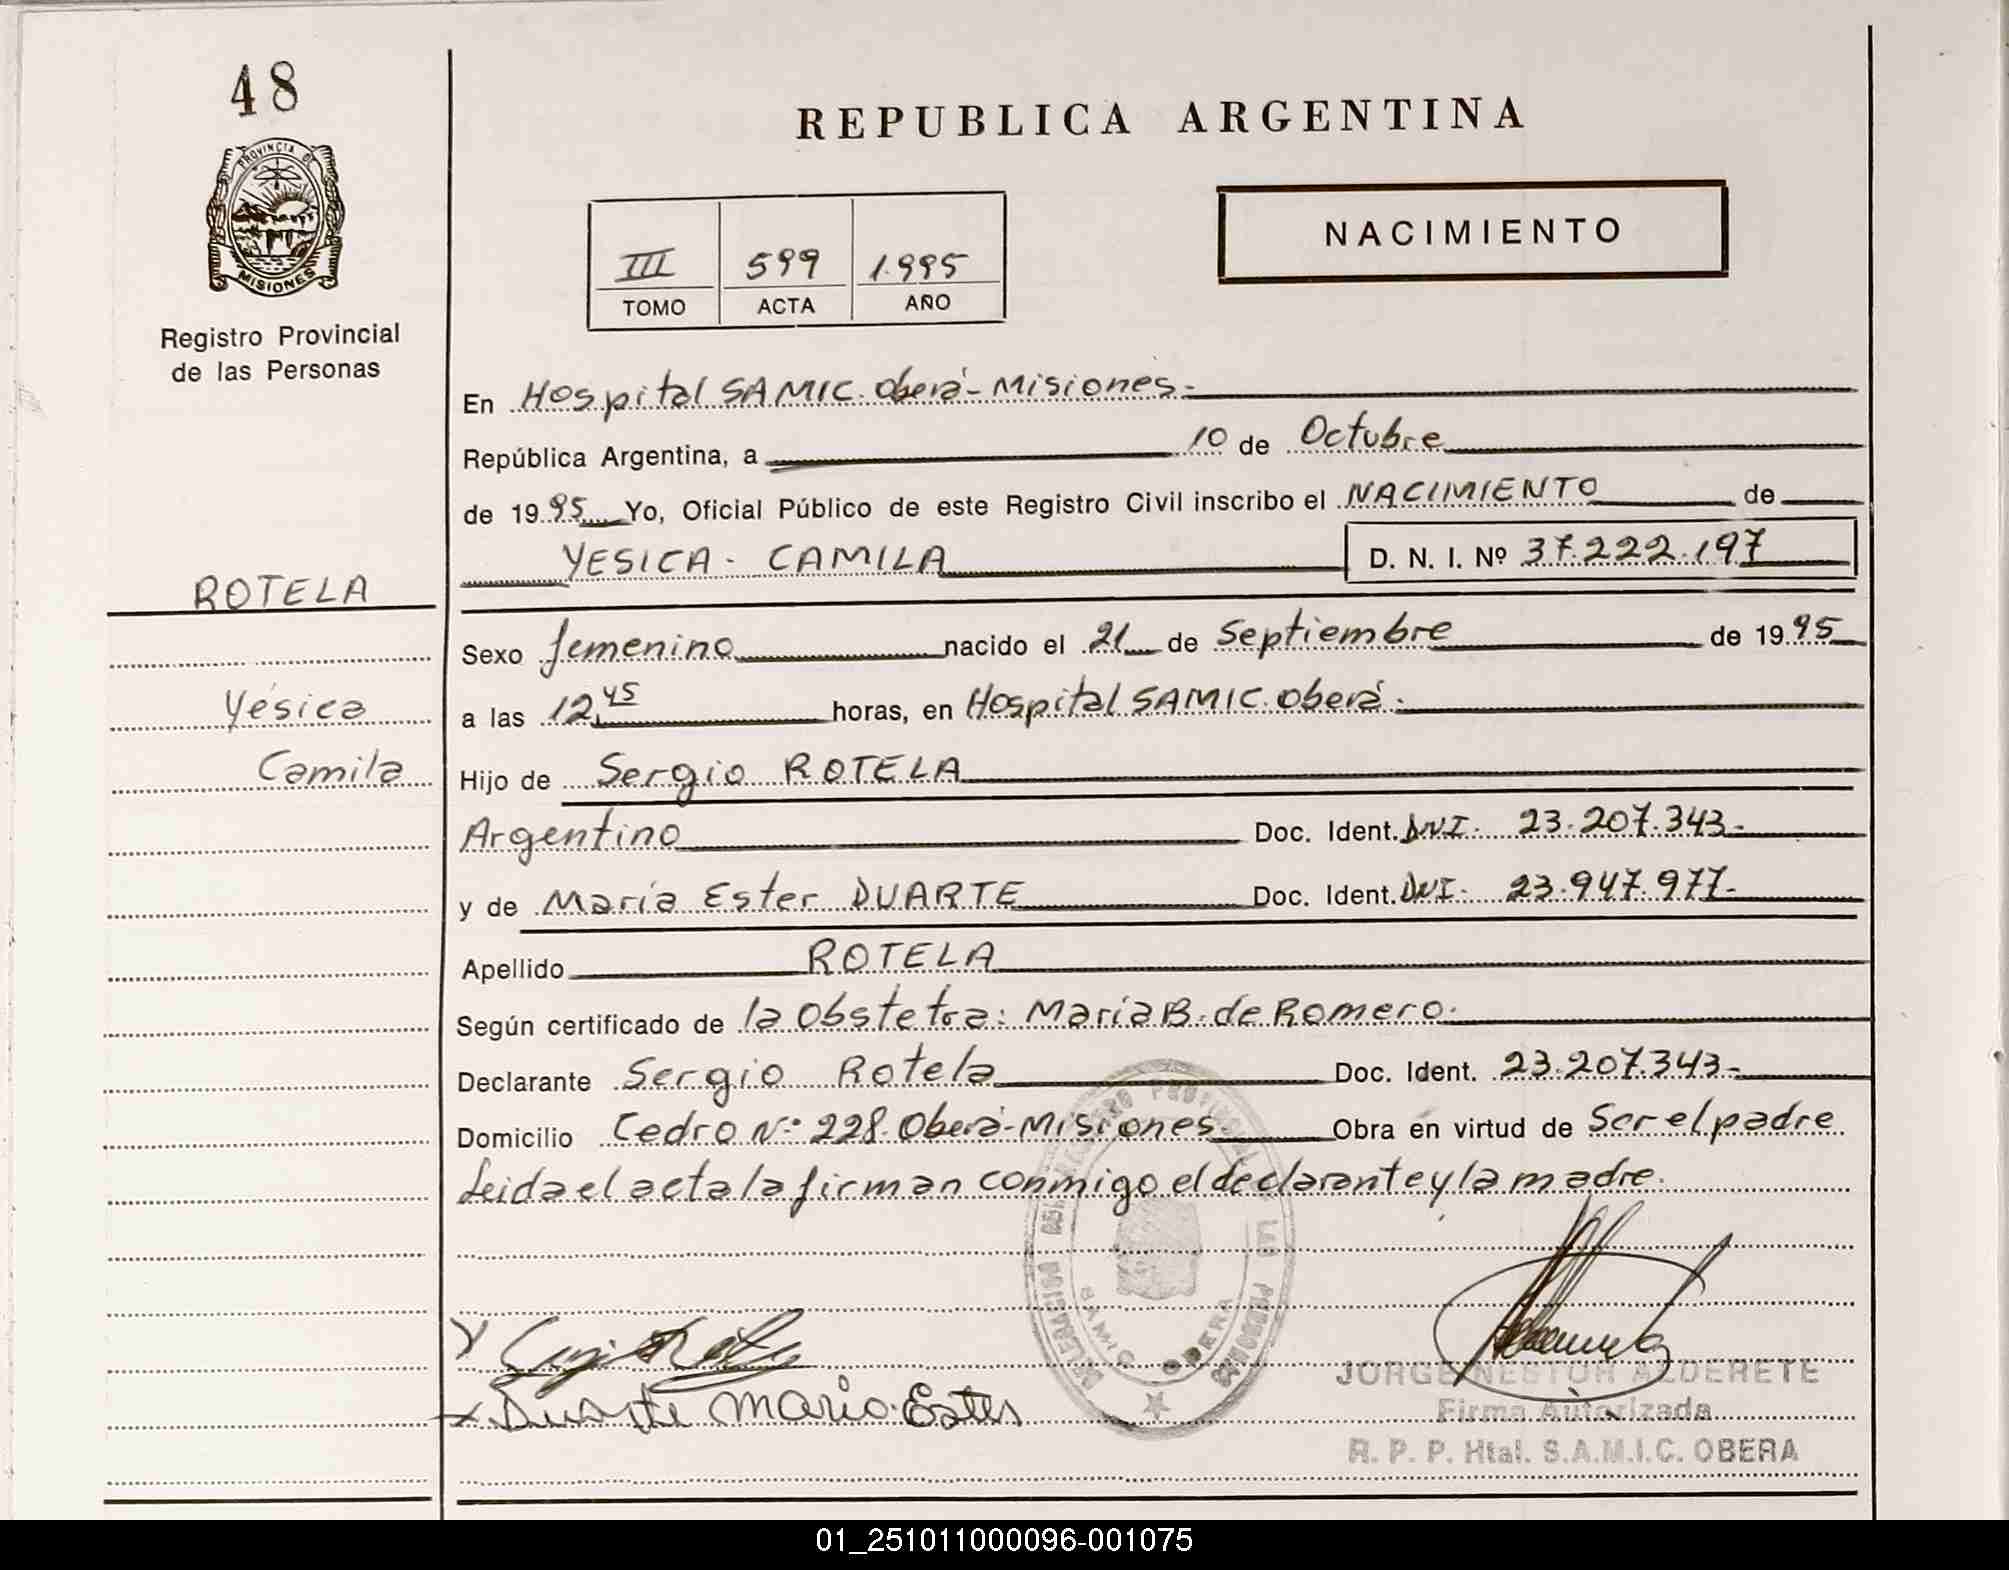 48
PROVINCIA DE
MISIONES
Registro Provincial
de las Personas
ROTELA
Yésica
Camila
REPUBLICA ARGENTINA
NACIMIENTO
III 599 1.995
TOMO ACTA AÑO
En Hospital SAMIC. Oberá - Misiones.-
República Argentina, a 10 de Octubre
de 1995 Yo, Oficial Público de este Registro Civil inscribo el NACIMIENTO de
YESICA - CAMILA D. N. I. Nº 37.222.197
Sexo femenino nacido el 21 de Septiembre de 1995
a las 12,45 horas, en Hospital SAMIC. Oberá.-
Hijo de Sergio ROTELA
Argentino Doc. Ident. DNI. 23.207.343-
y de María Ester DUARTE Doc. Ident. DNI. 23.947.977-
Apellido ROTELA
Según certificado de la Obstetra: María B. de Romero.
Declarante Sergio Rotela Doc. Ident. 23.207.343-
Domicilio Cedro Nº 228. Oberá - Misiones Obra en virtud de Ser el padre
Leida el acta la firman conmigo el declarante y la madre.
DELEGACION DEL REGISTRO PROVINCIAL DE LAS PERSONAS
SAMIC OBERA
Duarte Maria Ester
JORGE NESTOR ALDERETE
Firma Autorizada
R. P. P. Htal. S.A.M.I.C. OBERA
01_251011000096-001075